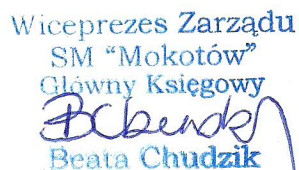 Wiceprezes Zarządu
SM "Mokotów"
Główny Księgowy
Beata Chudzik